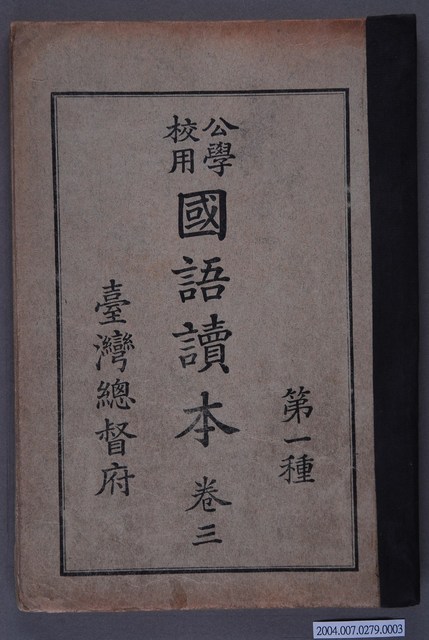 第一種
公學校用
國語讀本 卷三
臺灣總督府
2004.007.0279.0003